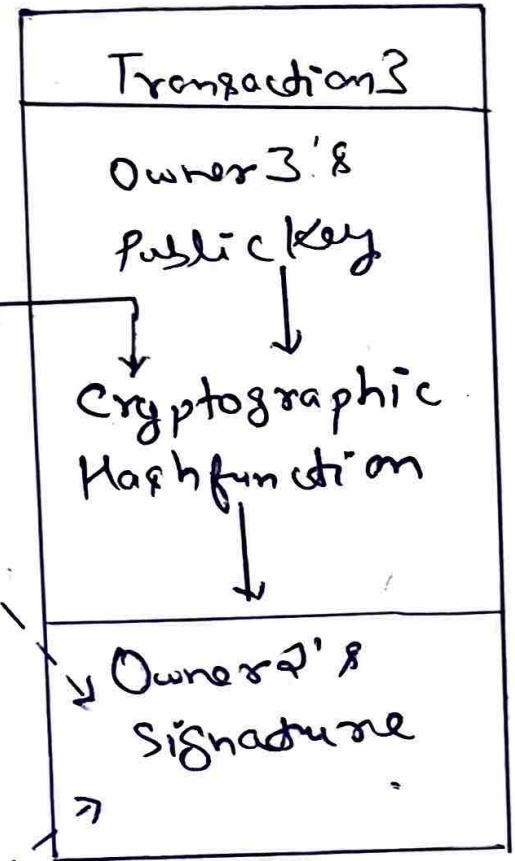 Transaction3
Owner 3's
Public Key
Cryptographic
Hash function
Owner2's
Signature